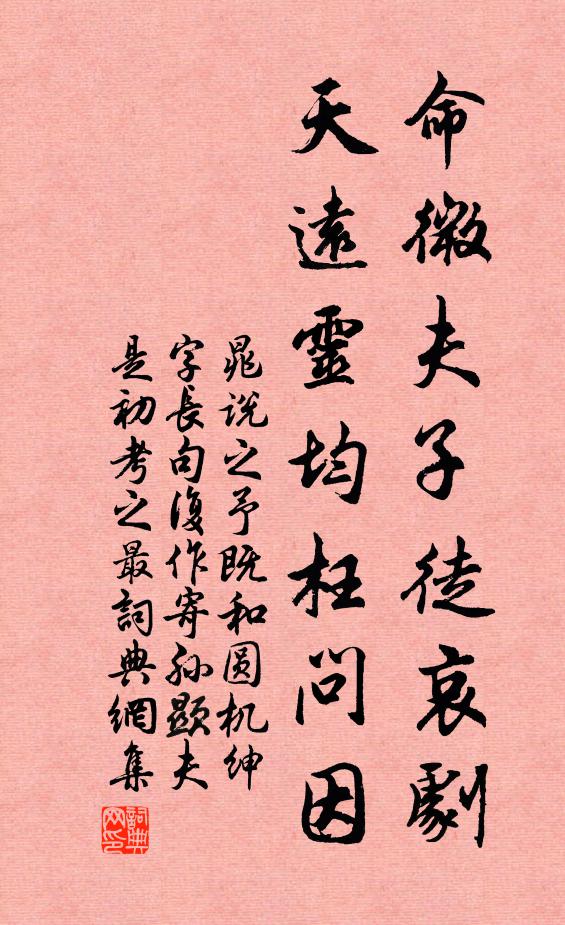 命微夫子徒哀劇
天遠靈均枉問因
晁説之予既和圆机绅
字長句復作寄孙顯夫
是初考之最詞典網集
詞典网印